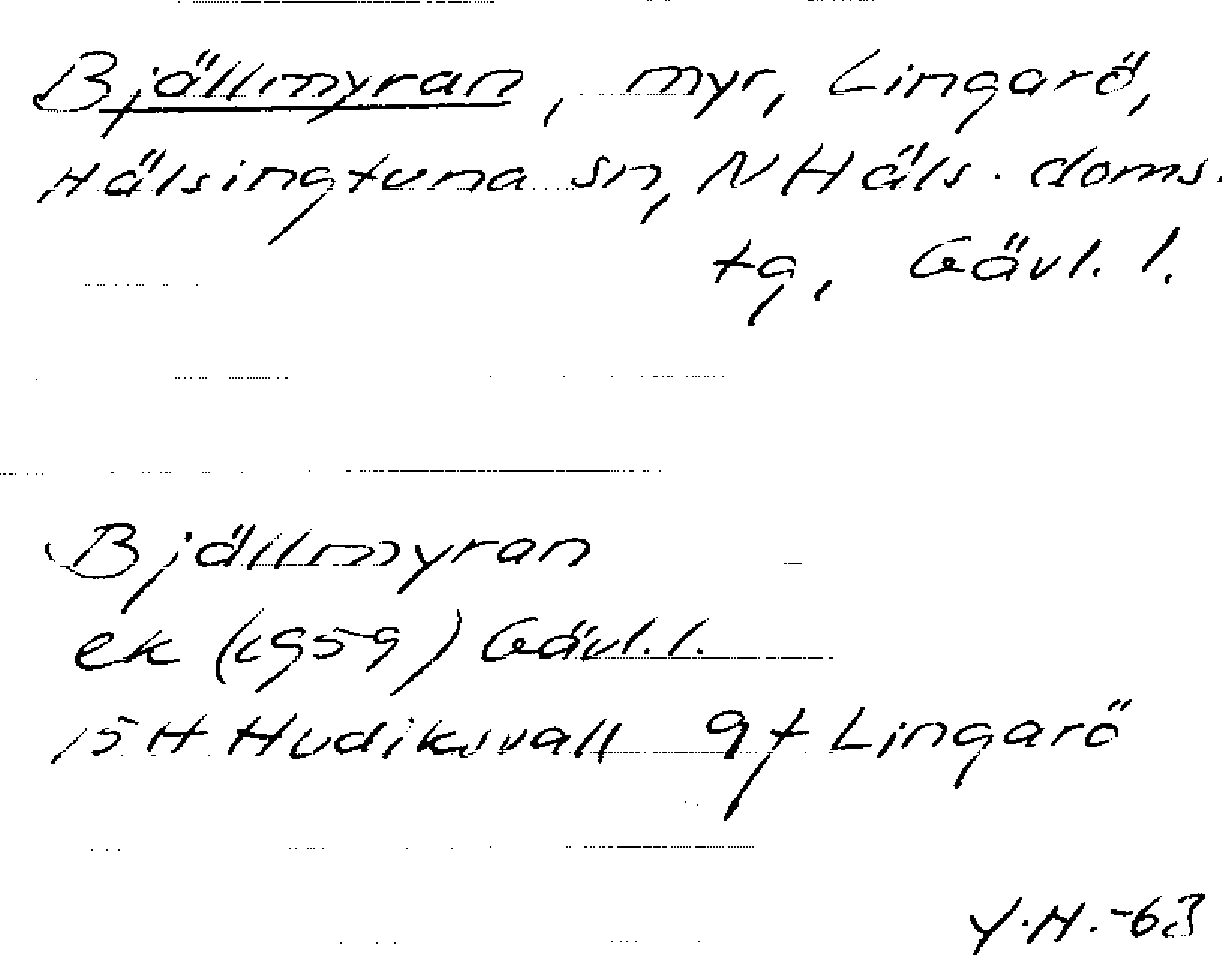 Bjällmyran, myr, Lingarö,
Hälsingtuna sn, N Häls. doms.
tg, Gävl. l.
Bjällmyran
ek (1959) Gävl. l.
15 H Hudiksvall 9f Lingarö
Y.H.-63